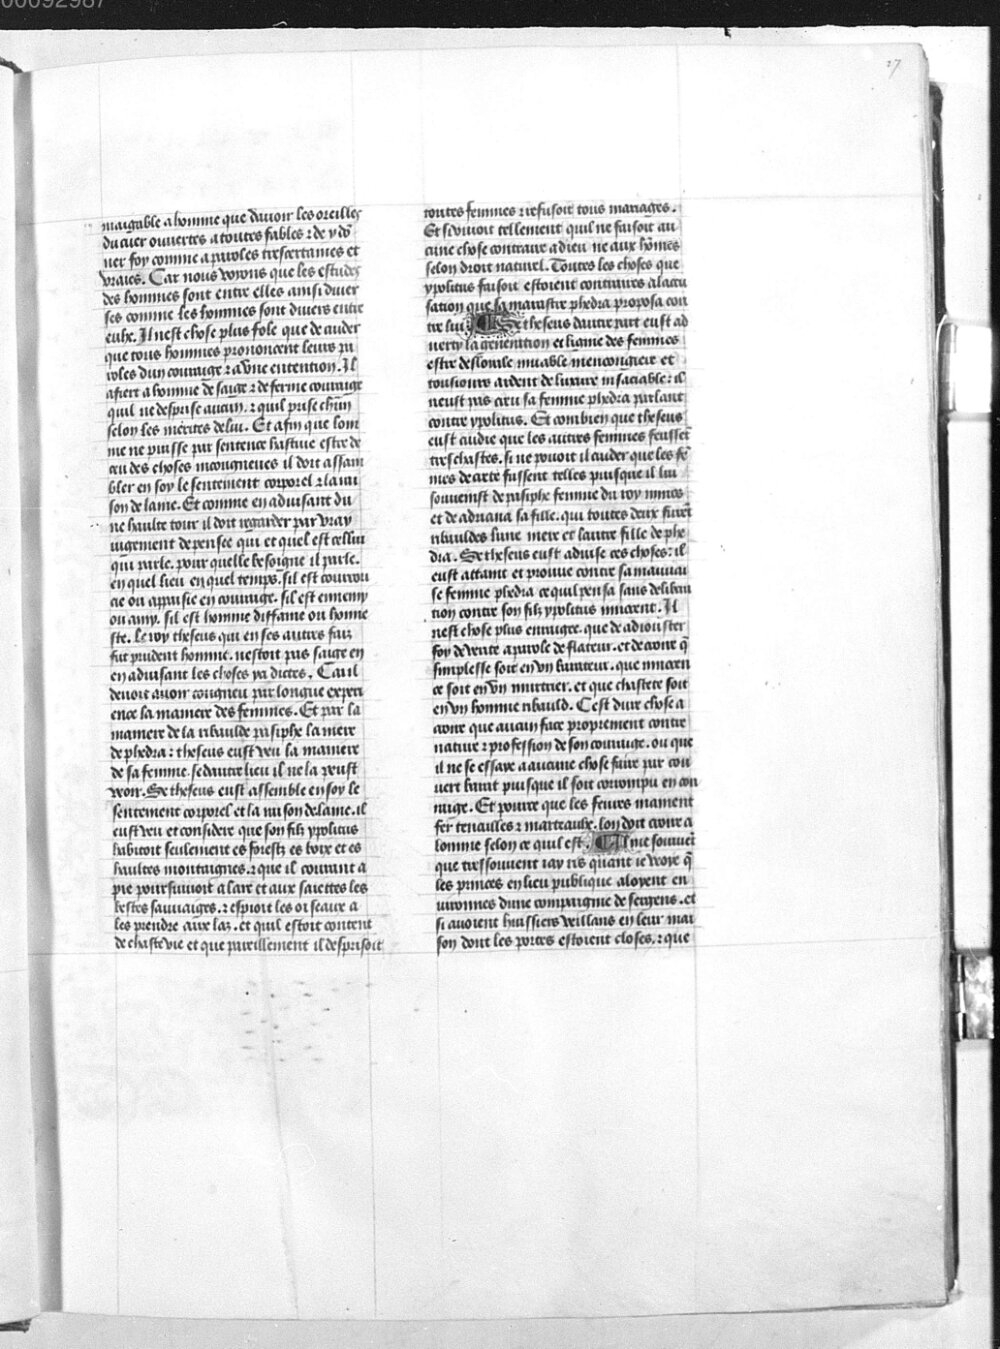 00092987
27
maigable a homme que davoir les oreilles
du cuer ouvertes a toutes fables ⁊ de y do
ner foy comme a paroles trescertaines et
vraies. Car nous voions que les estudes
des hommes sont entre elles ainsi diver
ses comme les hommes sont divers entre
eulx. Il nest chose plus fole que de cuider
que tous hommes prononcent leurs pa
roles dun couraige ⁊ a une entention. Il
afiert a homme de saige ⁊ de ferme couraige
quil ne desprise aucun. ⁊ quil prise chun
selon les merites de lui. Et afin que lom
me ne puisse par sentence hastive estre de
ceu des choses incongneues il doit assam
bler en soy le sentement corporel ⁊ la rai
son de lame. Et comme en advisant du
ne haulte tour il doit regarder par vray
jugement de pensee qui et quel est cellui
qui parle. pour quelle besoigne il parle.
en quel lieu en quel temps. sil est courrou
cie ou appaisie en couraige. sil est ennemy
ou amy. sil est homme diffame ou honne
ste. Le roy theseus qui en ses autres faiz
fut prudent homme. nestoit pas saige en
en advisant les choses ya dictes. Car il
devoit avoir congneu par longue experi
ence la maniere des femmes. Et par la
maniere de la ribaulde pasiphe la mere
de phedra: theseus eust veu la maniere
de sa femme. se dautre lieu il ne la peust
veoir. Se theseus eust assemble en soy le
sentement corporel et la raison de lame. il
eust veu et considere que son filz ypolitus
habitoit seulement es foriestz es boix et es
haultes montaignes. ⁊ que il courant a
pie poursuivoit a larc et aux saiettes les
bestes sauvaiges. ⁊ espioit les oiseaux a
les prendre aux laz. et quil estoit content
de chaste vie et que pareillement il desprisoit
toutes femmes ⁊ refusoit tous mariages.
Et si vivoit tellement quil ne faisoit au
cune chose contraire a dieu ne aux hommes
selon droit naturel. Toutes les choses que
ypolitus faisoit estoient contraires a laccu
sation que sa marastre phedra proposa con
tre lui. Se theseus dautre part eust ad
verty la generation et ligne des femmes
estre desloiale muable mencongiere et
tousiours ardent de luxure insaciable: il
neust pas creu sa femme phedra parlant
contre ypolitus. Et combien que theseus
eust oudie que les autres femmes feusset
treschastes. si ne povoit il cuider que les fe
mes de crete fussent telles puisque il lui
souvenist de pasiphe femme du roy minos
et de adriana sa fille. qui toutes deux furet
ribauldes lune mere et lautre fille de phe
dra. Se theseus eust advise ces choses: il
eust attaint et prouve contre sa mauvai
se femme phedra ce quil pensa sans delibera
tion contre son filz ypolitus innocent. Il
nest chose plus enraigee. que de adiouster
foy de verite a parole de flateur. et de croire q̃
simplesse soit en un barateur. que innocen
ce soit en un murtrier. et que chastete soit
en un homme ribauld. Cest dure chose a
croire que aucun face proprement contre
nature ⁊ profession de son couraige. ou que
il ne se essaye a aucune chose faire par cou
vert barat puisque il soit corrompu en cou
raige. Et pource que les fevres mainent
fer tenailles ⁊ marteaulx. lon doit croire a
lomme selon ce quil est. Il me souviet
que tressouvent iay ris quant ie veoie q̃
les princes en lieu publique aloyent en
vironnes dune compaignie de sergens. et
si avoient huissiers veillans en leur mai
son dont les portes estoient closes. ⁊ que